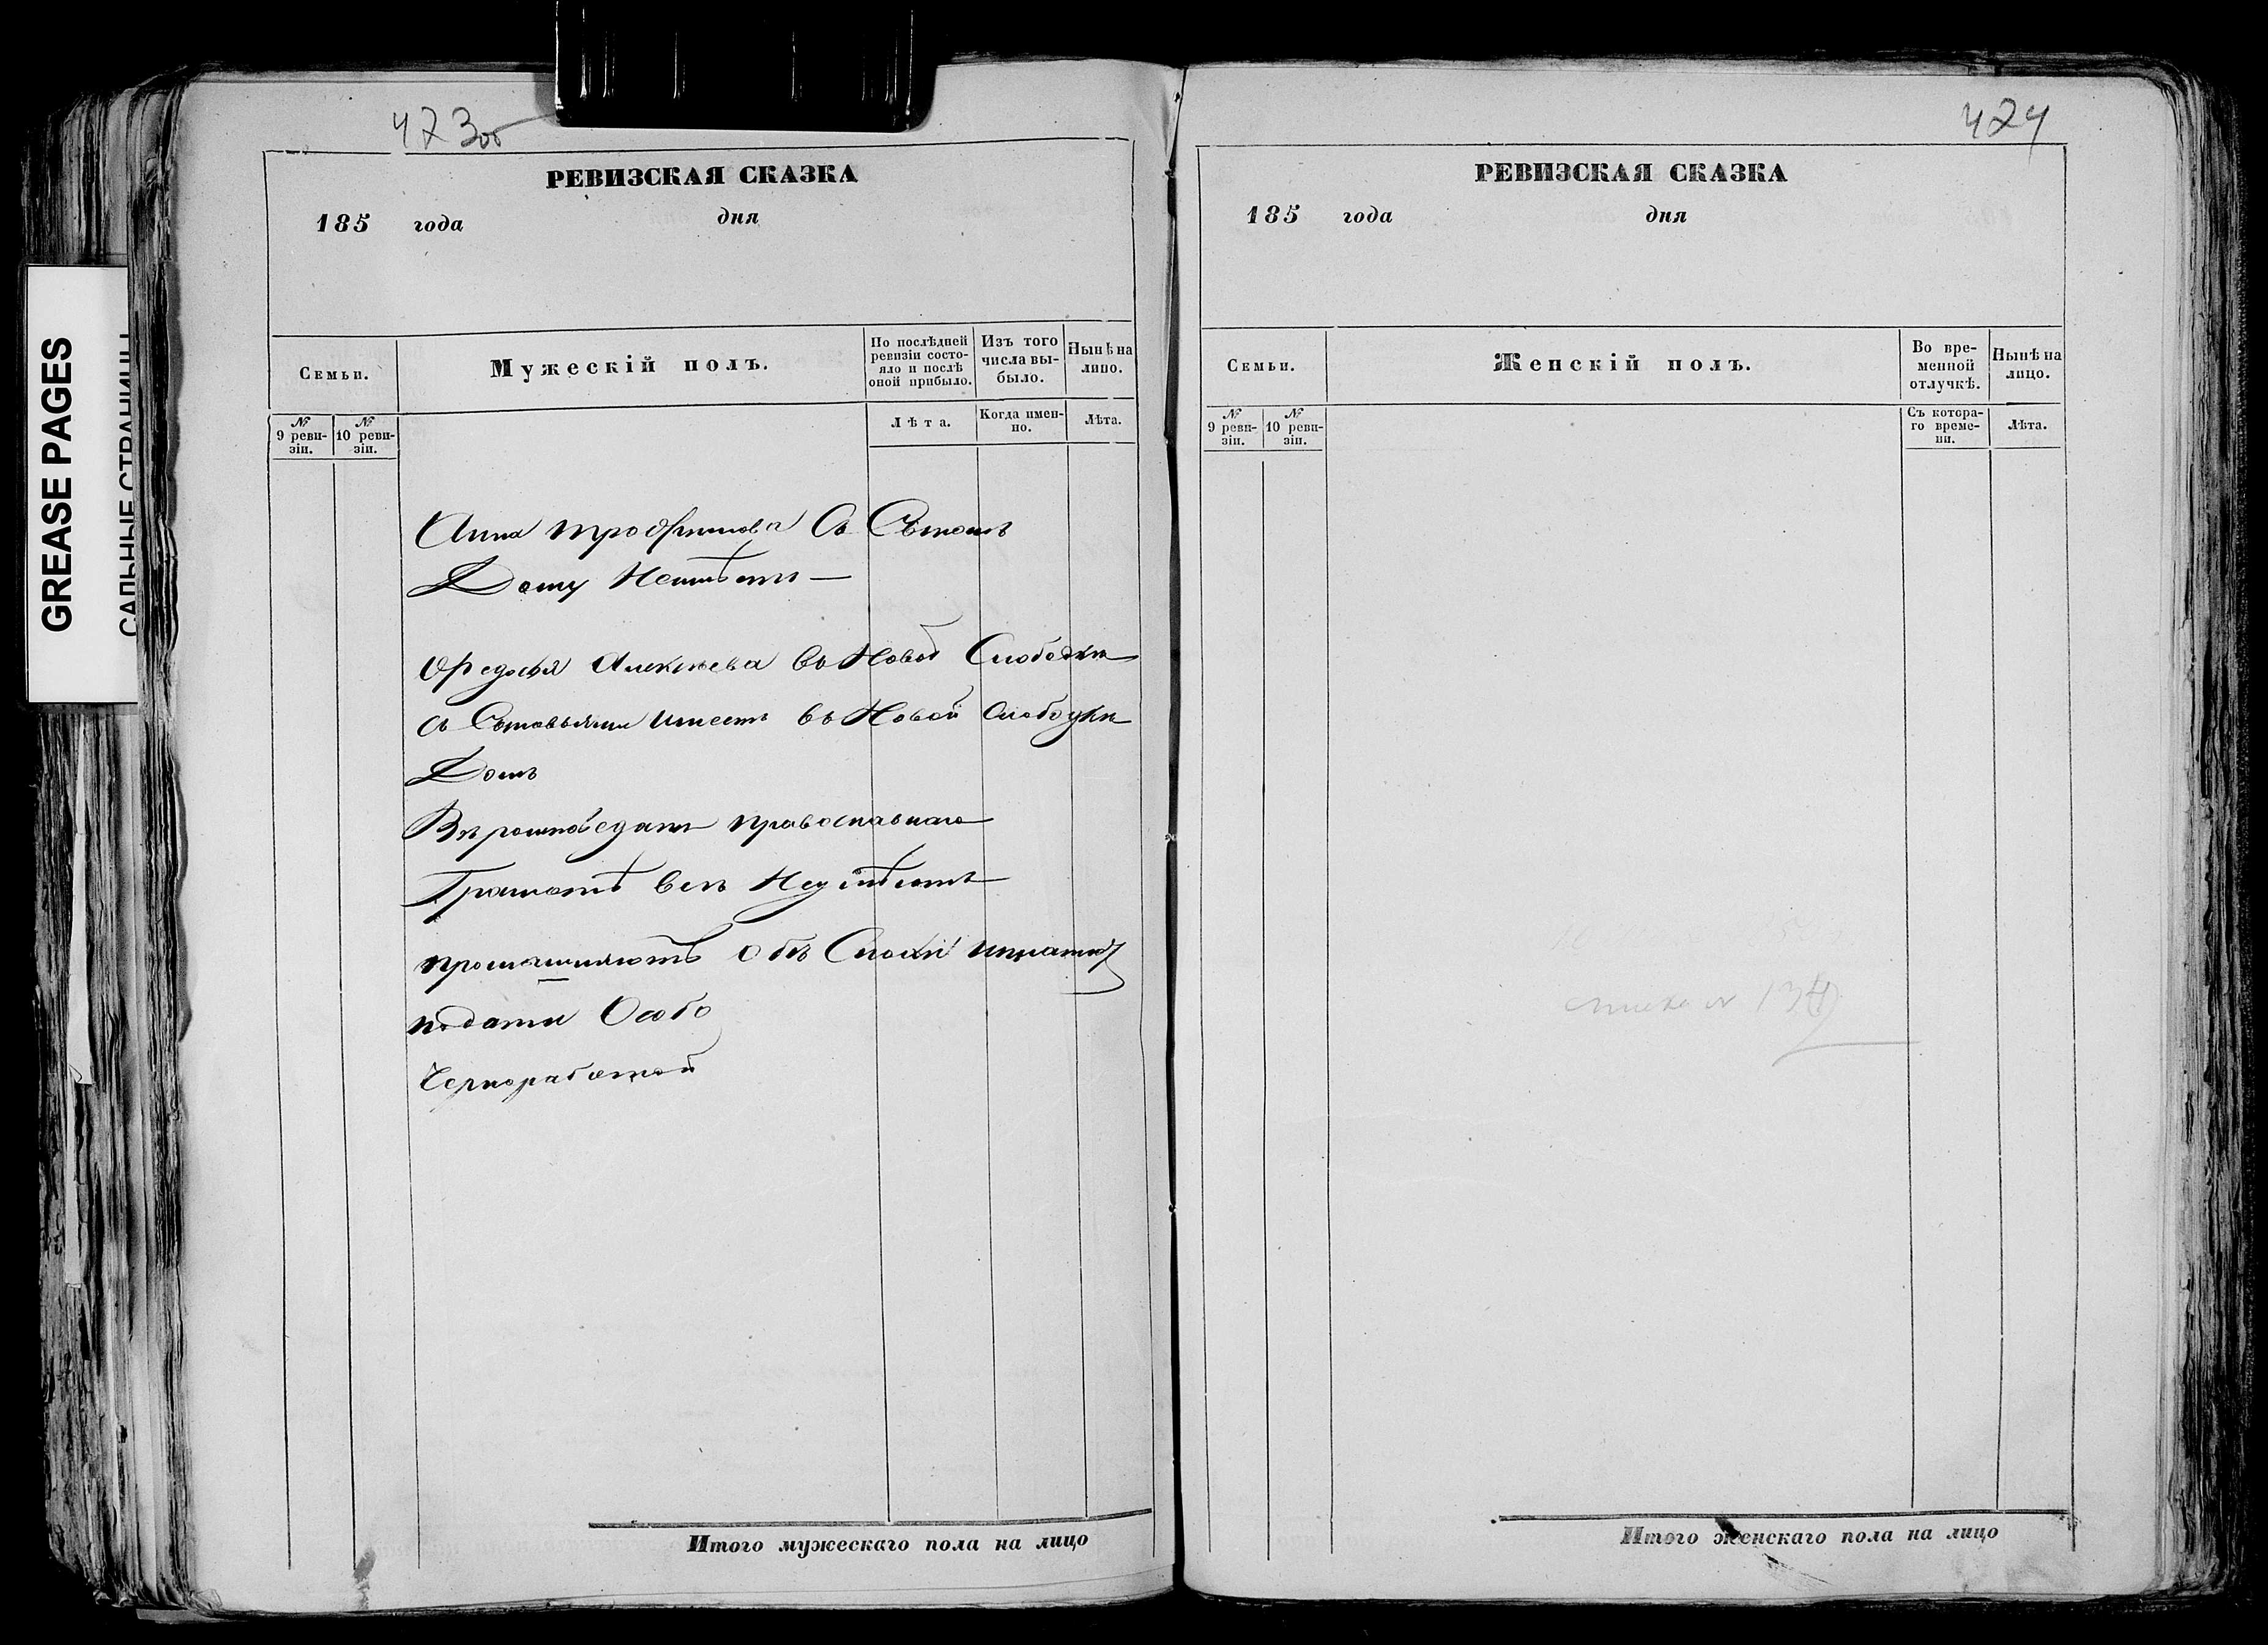 GREASE PAGES
САЛЬНЫЕ СТРАНИЦЫ
423об
РЕВИЗСКАЯ СКАЗКА
185 года дня
Семьи.
Мужескій полъ.
По послѣдней ревизіи состояло и послѣ оной прибыло.
Изъ того числа выбыло.
Нынѣ на лицо.
№ 9 ревизіи.
№ 10 ревизіи.
Лѣта.
Когда именно.
Лѣта.
Анна трофимова Съ Сыномъ
Дому Неимѣетъ —
Федосья Алексѣева въ Новой Слободки
съ Сыновьями имеетъ въ Новой Слободки
Домъ
Вѣроисповеданія православнаго
Грамотѣ всѣ Неумѣютъ
подати Особо
Черноработой
Итого мужескаго пола на лицо
424
РЕВИЗСКАЯ СКАЗКА
185 года дня
Семьи.
Женскій полъ.
Во временной отлучкѣ.
Нынѣ на лицо.
№ 9 ревизіи.
№ 10 ревизіи.
Съ котораго времени.
Лѣта.
Итого женскаго пола на лицо